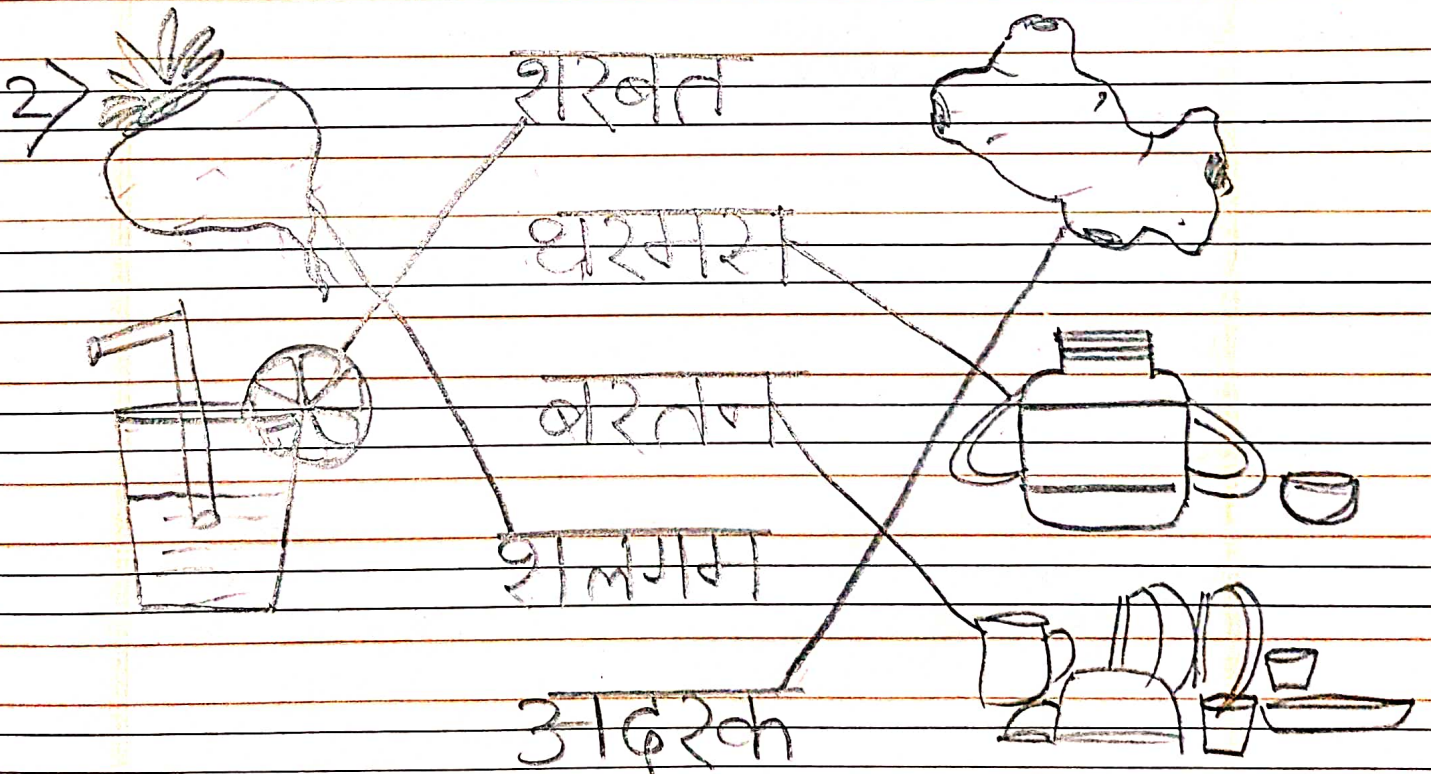 2)
शरबत
थरमस
बरतन
शलगम
अदरक